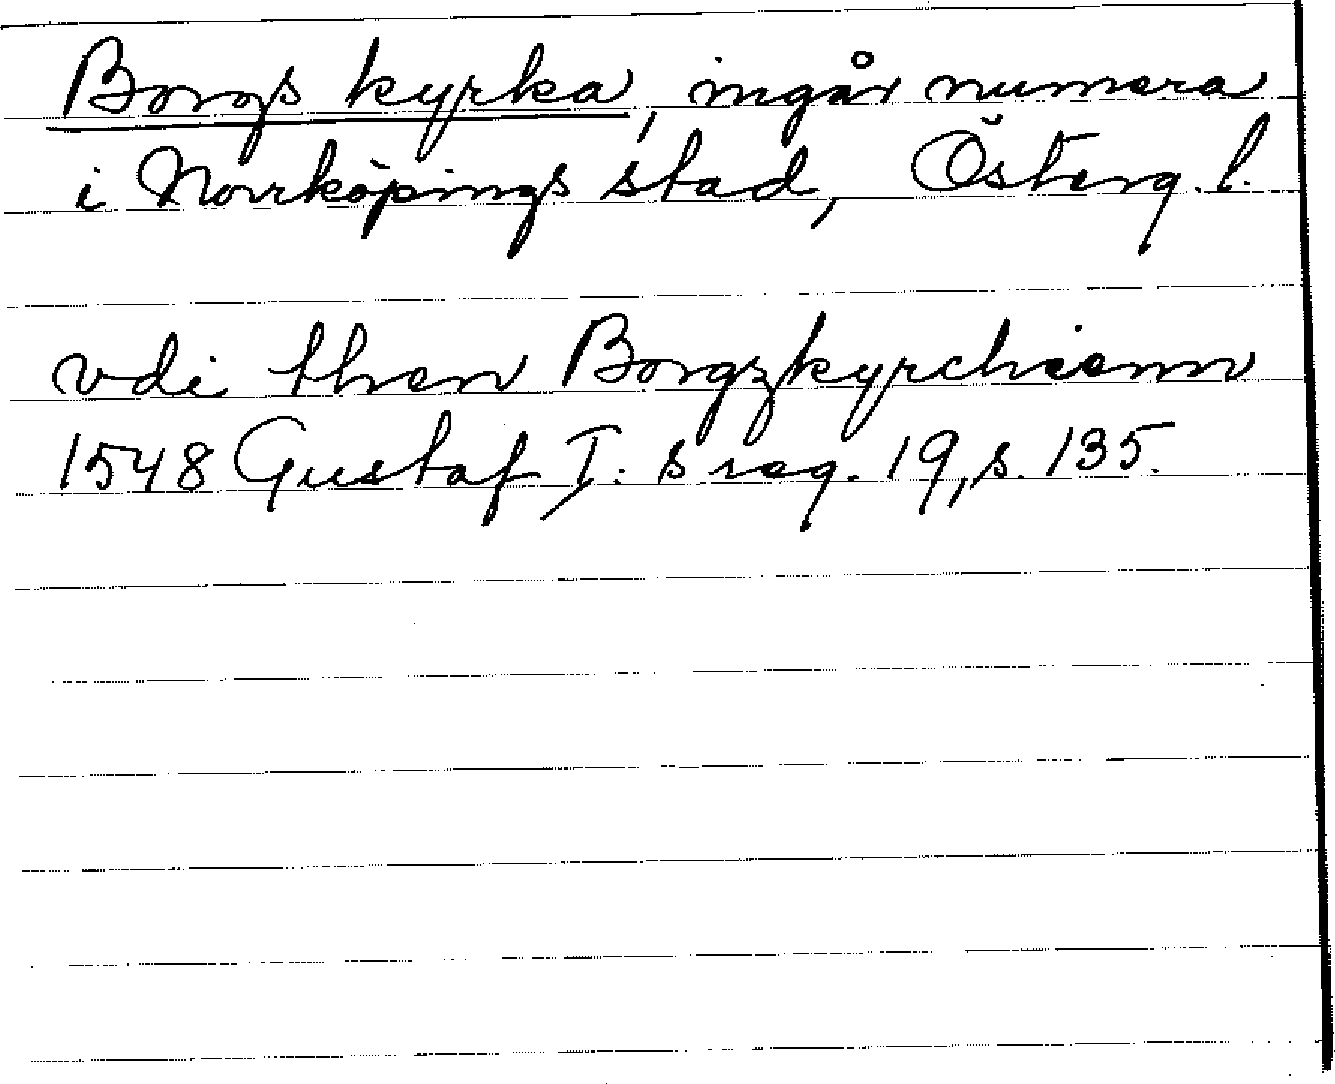 Borgs kyrka, ingår numera
i Norrköpings stad, Österg. l.
vdi then Borgzkyrchienn
1548 Gustaf I: s reg. 19, s. 135.